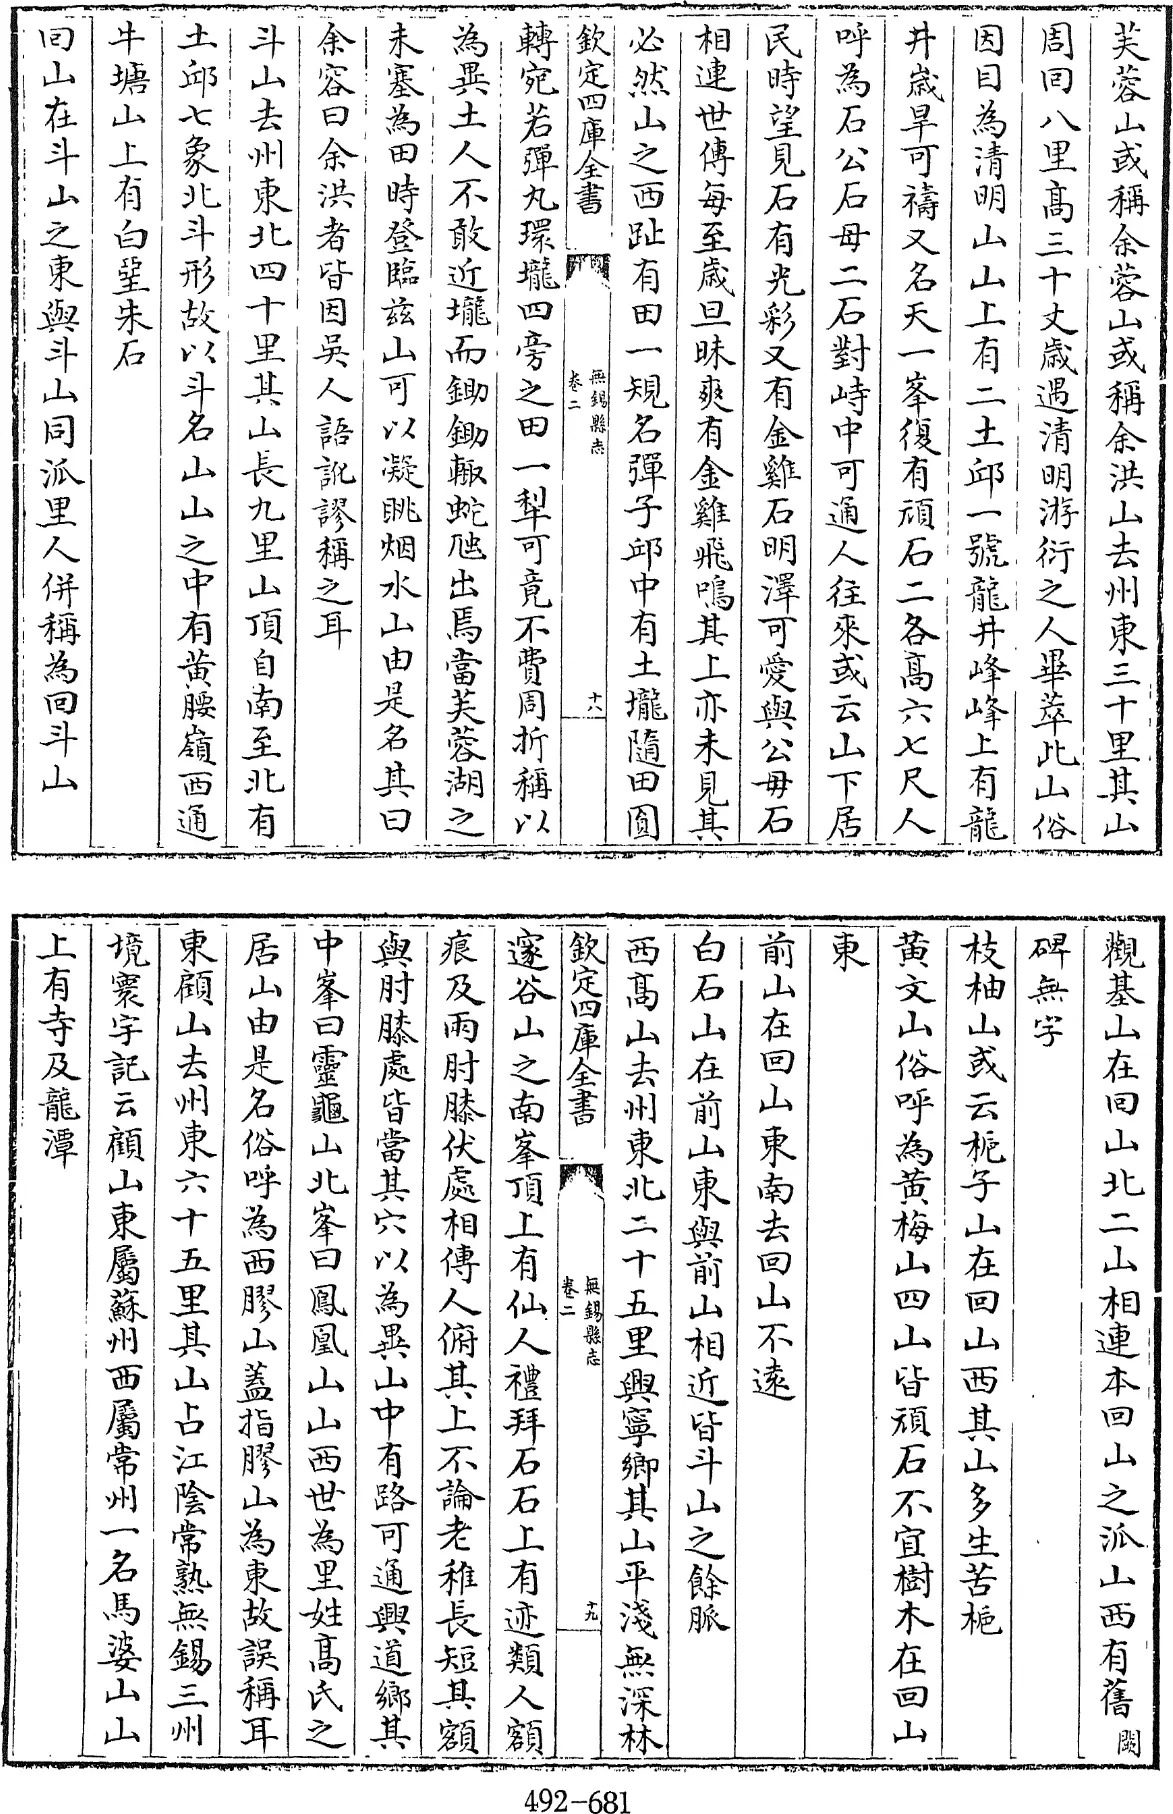 芙蓉山或稱余蓉山或稱余洪山去州東三十里其山
周回八里髙三十丈歲遇清明游衍之人畢萃此山俗
因目為清明山山上有二土邱一號龍井峰峰上有龍
井歲旱可禱又名天一峯復有頑石二各髙六七尺人
呼為石公石母二石對峙中可通人往來或云山下居
民時望見石有光彩又有金雞石明澤可愛與公毋石
相連世傳每至歲旦昧爽有金雞飛鳴其上亦未見其
必然山之西趾有田一規名彈子邱中有土壠隨田圓
欽定四庫全書
無錫縣志
卷二
十八
轉宛若彈丸環壠四旁之田一犁可竟不費周折稱以
為異土人不敢近壠而鋤鋤輙蛇虺出焉當芙蓉湖之
未塞為田時登臨兹山可以凝眺烟水山由是名其曰
余容曰余洪者皆因吳人語訛謬稱之耳
斗山去州東北四十里其山長九里山頂自南至北有
土邱七象北斗形故以斗名山山之中有黃腰嶺西通
牛塘山上有白堊朱石
回山在斗山之東與斗山同派里人併稱為回斗山
觀基山在回山北二山相連本回山之派山西有舊闕
碑無字
枝柚山或云梔子山在回山西其山多生苦梔
黃文山俗呼為黃梅山四山皆頑石不宜樹木在回山
東
前山在回山東南去回山不逺
白石山在前山東與前山相近皆斗山之餘脈
西髙山去州東北二十五里興寧鄉其山平淺無深林
欽定四庫全書
無錫縣志
卷二
十九
邃谷山之南峯頂上有仙人禮拜石石上有迹類人額
痕及兩肘膝伏處相傳人俯其上不論老稚長短其額
與肘膝處皆當其穴以為異山中有路可通興道鄉其
中峯曰靈龜山北峯曰鳳凰山山西世為里姓髙氏之
居山由是名俗呼為西膠山蓋指膠山為東故誤稱耳
東顧山去州東六十五里其山占江陰常熟無錫三州
境寰宇記云顧山東屬蘇州西屬常州一名馬婆山山
上有寺及龍潭
492-681